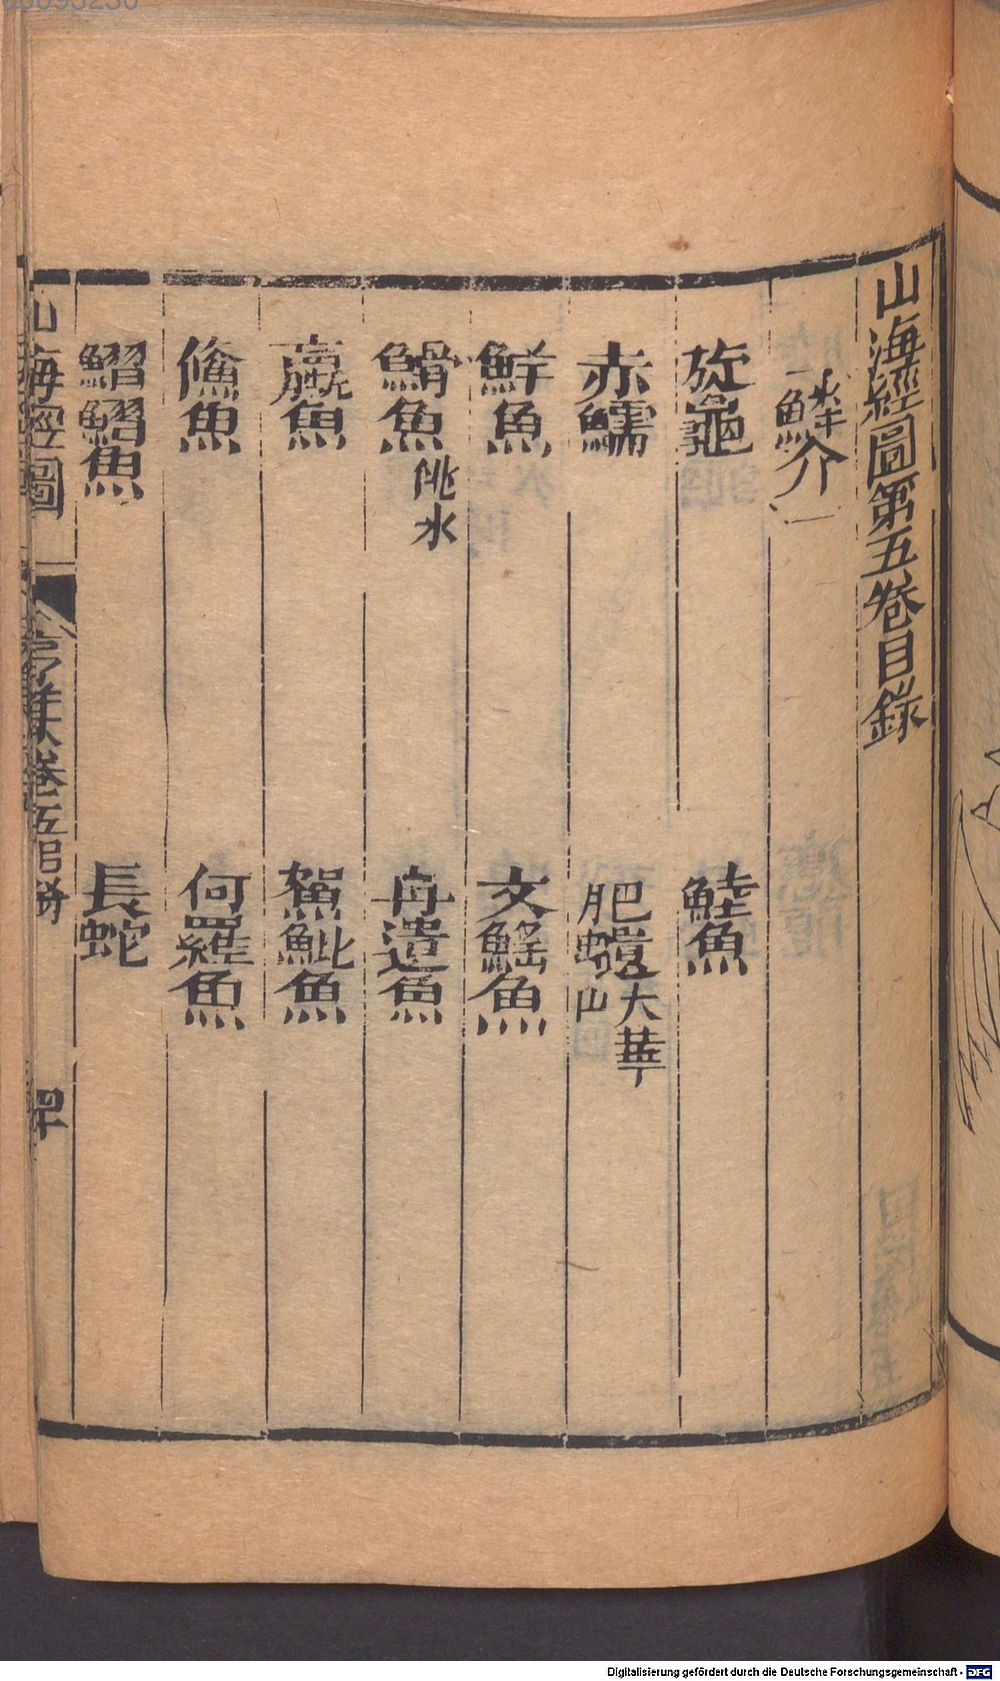 山海經圖第五卷目錄
鱗介一
旋龜 鮭魚
赤鱬 肥𧔥大華山
鮮魚 文鰩魚
䱻魚桃水 冉遺魚
蠃魚 鴽䱅魚
鯈魚 何羅魚
鰼鰼魚 長蛇
山海經圖 卷五目錄
Digitalisierung gefördert durch die Deutsche Forschungsgemeinschaft - DFG